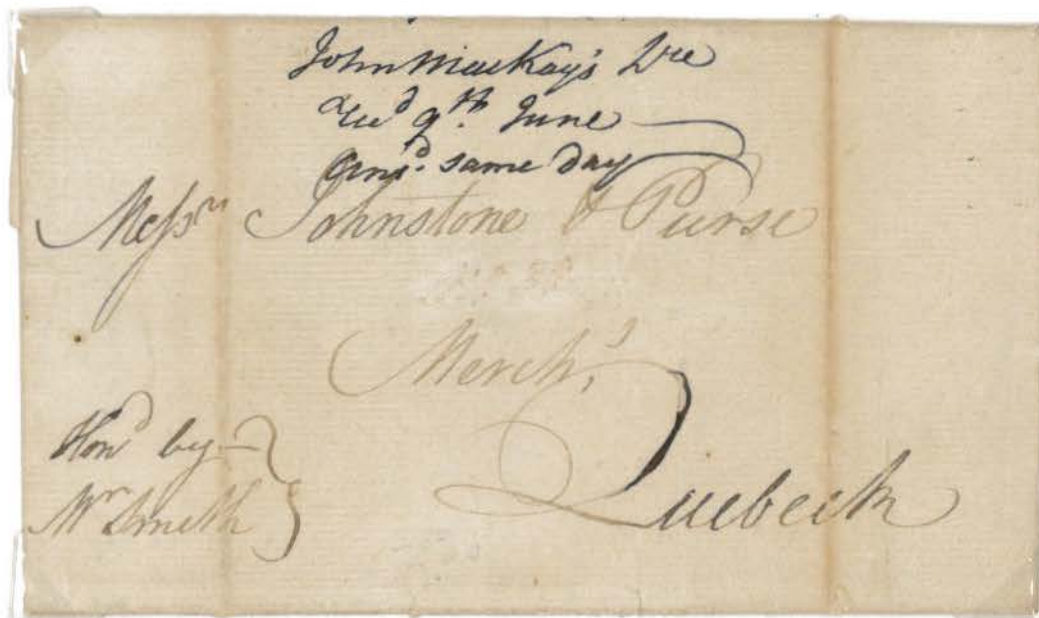 John MacKay's Lre
Recd 9th June
Ansd same day
Messrs Johnstone & Purse
Merchts
Quebeck
Hond by
Mr Smith